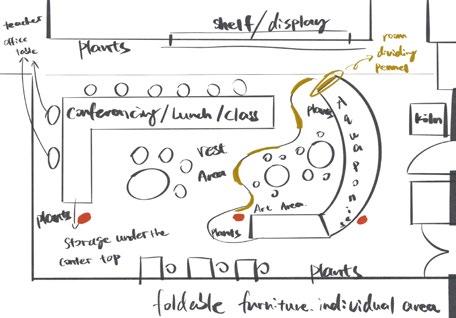 teacher
office
table
plants
shelf/display
room
dividing
pannel
Conferencing/Lunch/class
plants
Aquaponic
Köln
rest
Area
plants
Storage under the
conter top
Art Area
plants
plants
foldable furniture. individual area